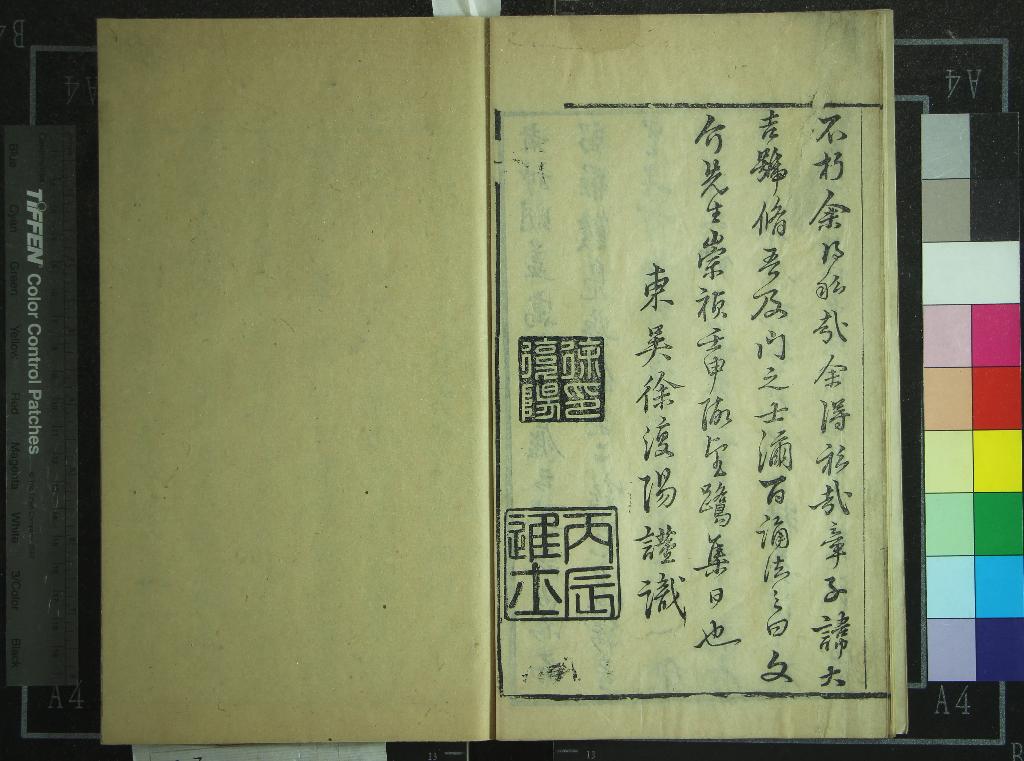 不朽余得私哉余得私哉章子諱大
吉號脩吾及門之士濔百誦法之曰文
介先生崇禎壬申陬皇鷺集日也
東吳徐復陽謹識
徐復陽印
丙辰進士
TIFFEN Color Control Patches
Blue Cyan Green Yellow Red Magenta White 3/Color Black
A4
A4
A4
A4
B
13
13